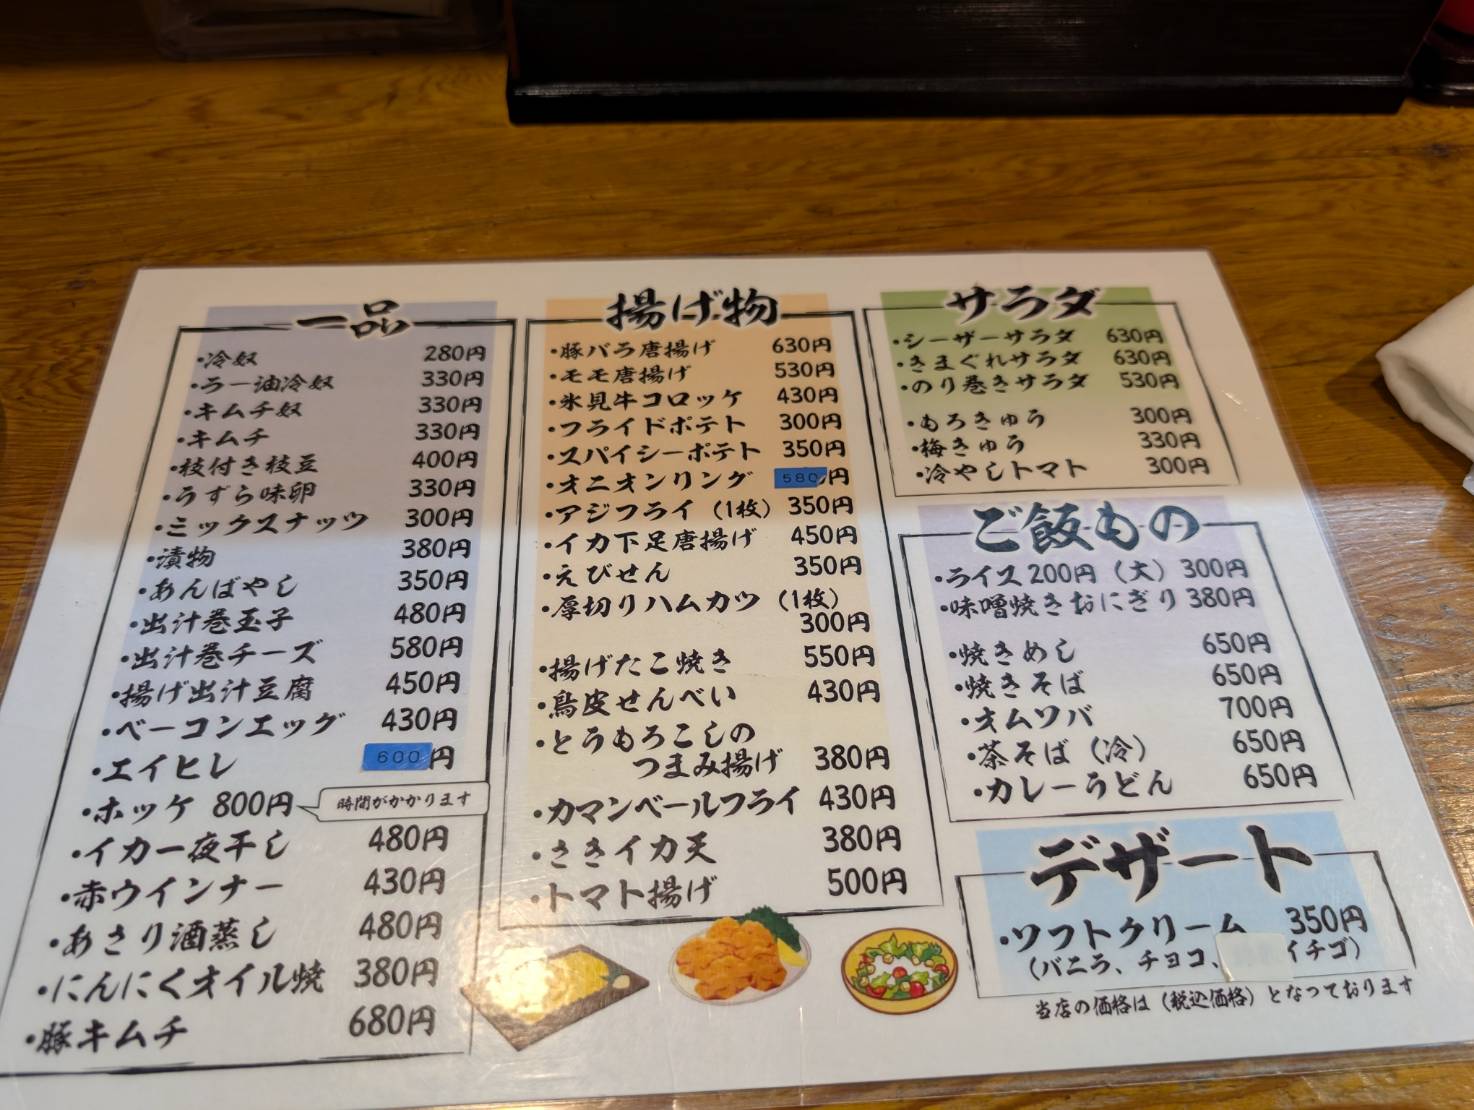 一品
・冷奴 280円
・ラー油冷奴 330円
・キムチ奴 330円
・キムチ 330円
・枝付き枝豆 400円
・うずら味卵 330円
・ミックスナッツ 300円
・漬物 380円
・あんばやし 350円
・出汁巻玉子 480円
・出汁巻チーズ 580円
・揚げ出汁豆腐 450円
・ベーコンエッグ 430円
・エイヒレ 600円
・ホッケ 800円 時間がかかります
・イカ一夜干し 480円
・赤ウインナー 430円
・あさり酒蒸し 480円
・にんにくオイル焼 380円
・豚キムチ 680円
揚げ物
・豚バラ唐揚げ 630円
・モモ唐揚げ 530円
・氷見牛コロッケ 430円
・フライドポテト 300円
・スパイシーポテト 350円
・オニオンリング 580円
・アジフライ（1枚） 350円
・イカ下足唐揚げ 450円
・えびせん 350円
・厚切りハムカツ（1枚）
300円
・揚げたこ焼き 550円
・鳥皮せんべい 430円
・とうもろこしの
つまみ揚げ 380円
・カマンベールフライ 430円
・さきイカ天 380円
・トマト揚げ 500円
サラダ
・シーザーサラダ 630円
・きまぐれサラダ 630円
・のり巻きサラダ 530円
・もろきゅう 300円
・梅きゅう 330円
・冷やしトマト 300円
ご飯もの
・ライス200円（大）300円
・味噌焼きおにぎり 380円
・焼きめし 650円
・焼きそば 650円
・オムソバ 700円
・茶そば（冷） 650円
・カレーうどん 650円
デザート
・ソフトクリーム 350円
（バニラ、チョコ、 イチゴ）
当店の価格は（税込価格）となっております